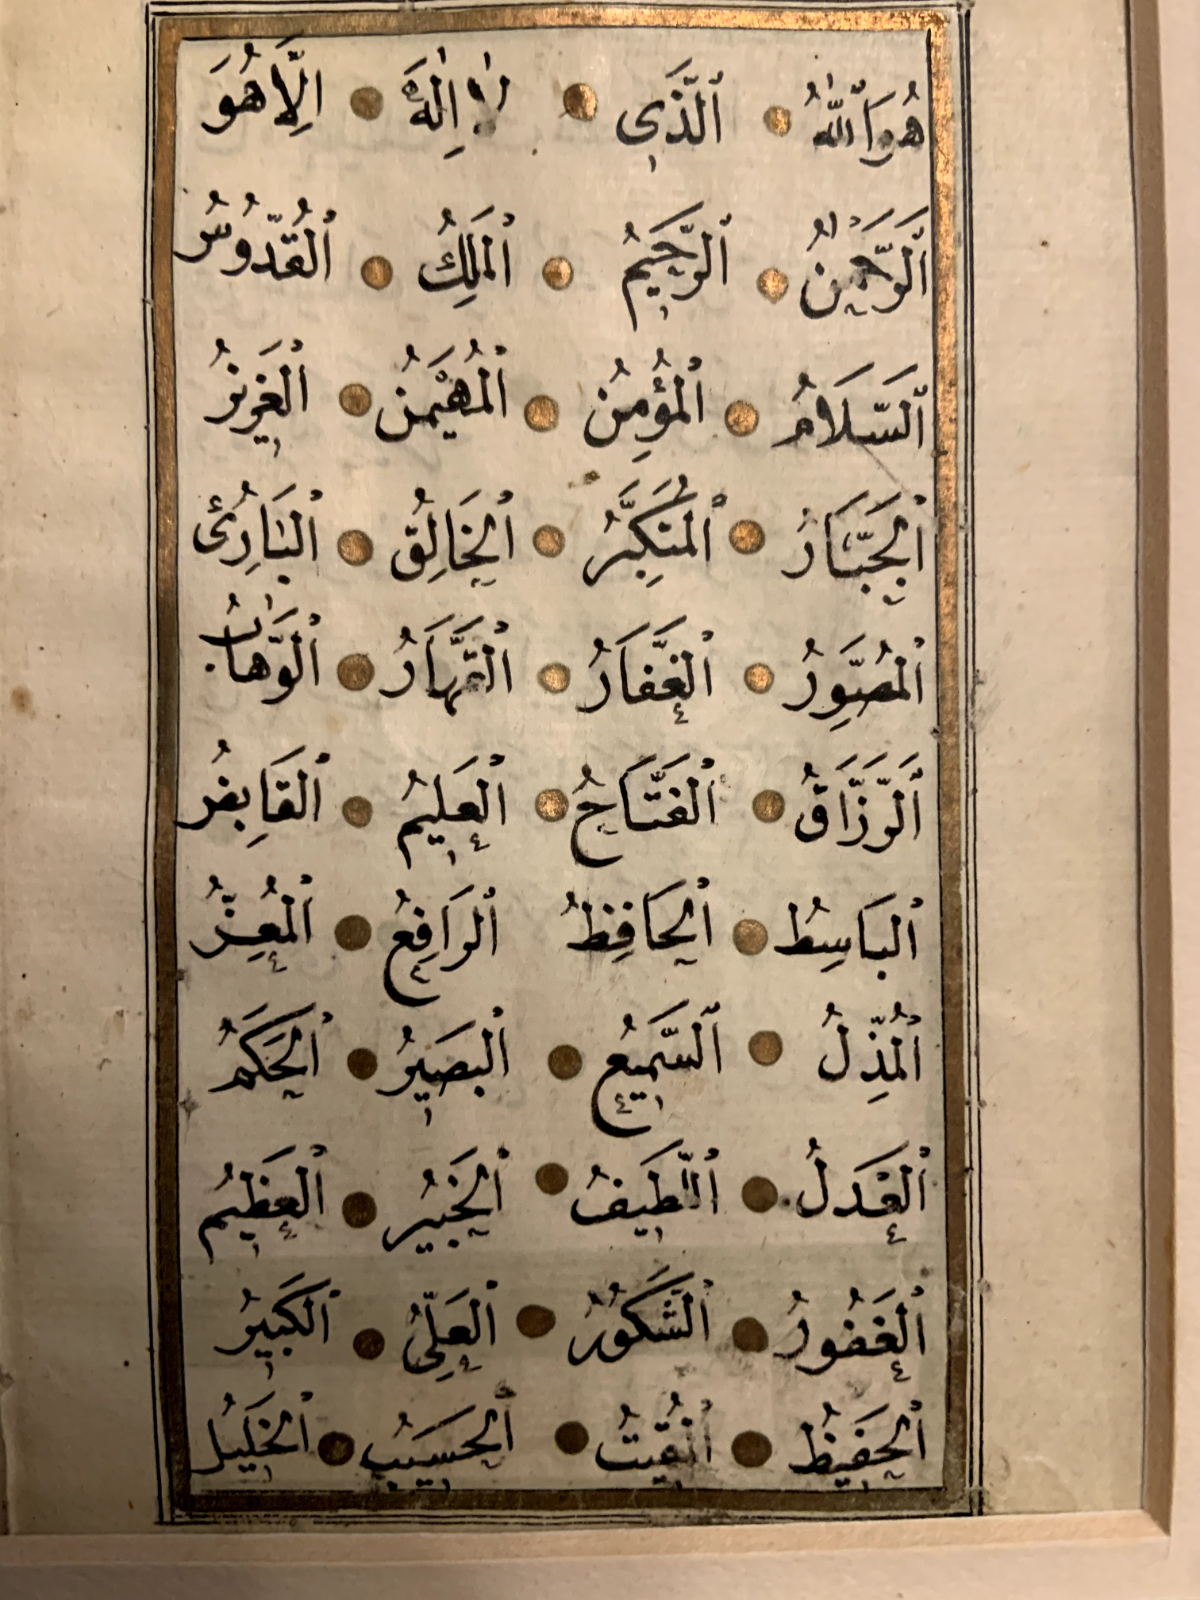 هُوَ ٱللّٰهُ ٱلَّذِي لَا إِلٰهَ إِلَّا هُوَ
ٱلرَّحْمٰنُ ٱلرَّحِيمُ ٱلْمَلِكُ ٱلْقُدُّوسُ
ٱلسَّلَامُ ٱلْمُؤْمِنُ ٱلْمُهَيْمِنُ ٱلْعَزِيزُ
ٱلْجَبَّارُ ٱلْمُتَكَبِّرُ ٱلْخَالِقُ ٱلْبَارِئُ
ٱلْمُصَوِّرُ ٱلْغَفَّارُ ٱلْقَهَّارُ ٱلْوَهَّابُ
ٱلرَّزَّاقُ ٱلْفَتَّاحُ ٱلْعَلِيمُ ٱلْقَابِضُ
ٱلْبَاسِطُ ٱلْحَافِظُ ٱلرَافِعُ ٱلْمُعِزُّ
ٱلْمُذِلُّ ٱلسَّمِيعُ ٱلْبَصِيرُ ٱلْحَكَمُ
ٱلْعَدَلُ ٱللَّطِيفُ ٱلْخَبِيرُ ٱلْعَظِيمُ
ٱلْغَفُورُ ٱلشَّكُورُ ٱلْعَلِىُّ ٱلْكَبِيرُ
ٱلْحَفِيظُ ٱلْمُقِيتُ ٱلْحَسِيبُ ٱلْجَلِيلُ